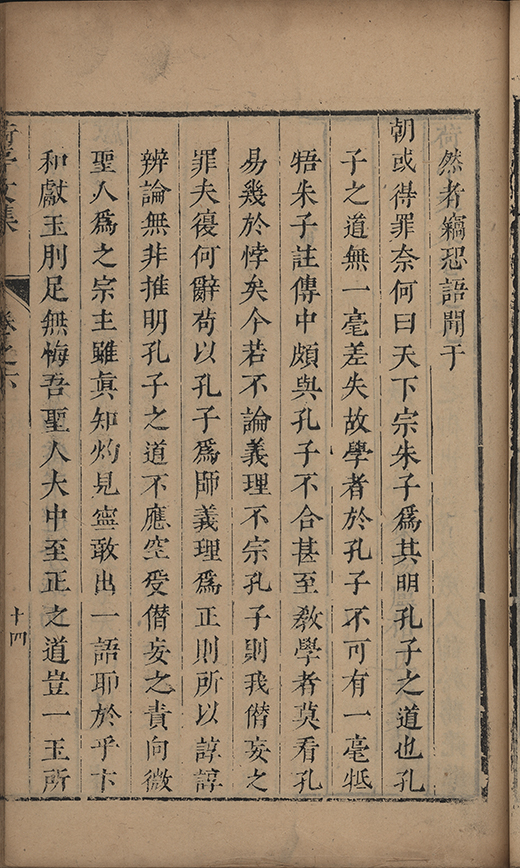 然者竊恐語聞于
朝或得罪奈何曰天下宗朱子爲其明孔子之道也孔
子之道無一毫差失故學者於孔子不可有一毫牴
牾朱子註傳中頗與孔子不合甚至敎學者莫看孔
易幾於悖矣今若不論義理不宗孔子則我僭妄之
罪夫復何辭苟以孔子爲師義理爲正則所以諄諄
辨論無非推明孔子之道不應空受僭妄之責向微
聖人爲之宗主雖眞知灼見寧敢出一語耶於乎卞
和獻玉刖足無悔吾聖人大中至正之道豈一玉所
文集
卷之六
十四